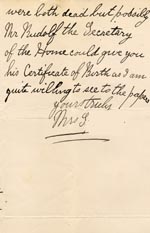 were both dead but possibly
Mr Rudolf the Secretary
of the Home could give you
his Certificate of Birth as I am
quite willing to see to the papers
Yours truly
Mrs G